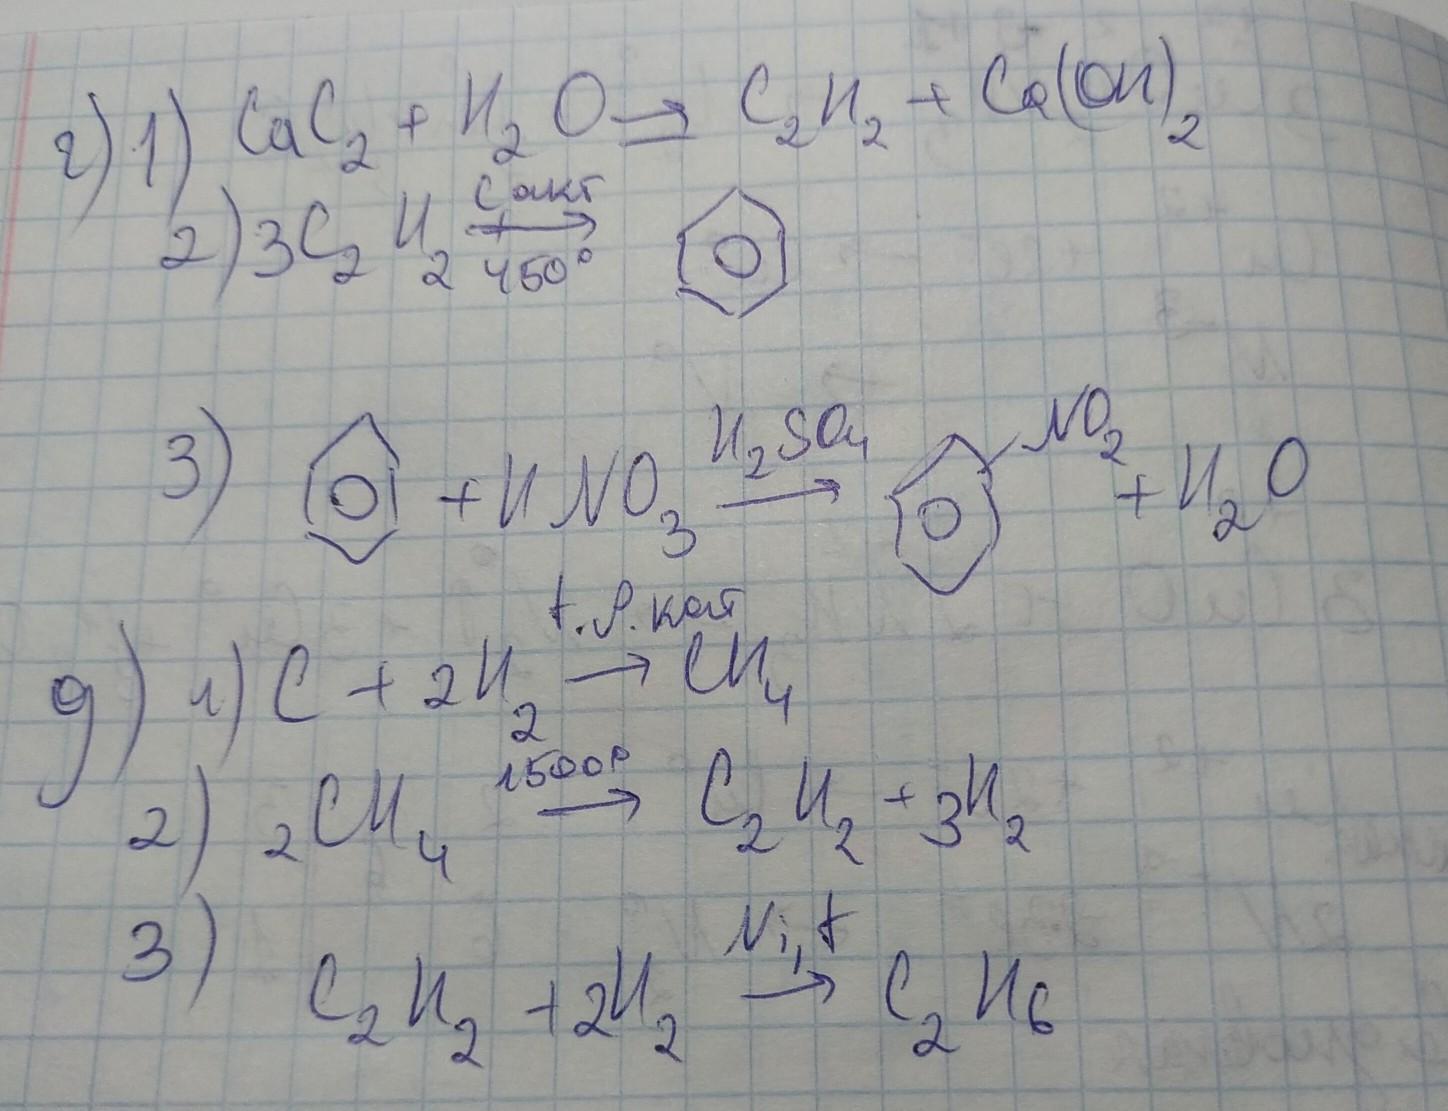 г) 1) CaC₂ + H₂O → C₂H₂ + Ca(OH)₂
2) 3C₂H₂ C акт 450° →
3) + HNO₃ H₂SO₄ → NO₂ + H₂O
g) 1) C + 2H₂ t.p.кат → CH₄
2) 2CH₄ 1500° → C₂H₂ + 3H₂
3) C₂H₂ + 2H₂ Ni, t → C₂H₆